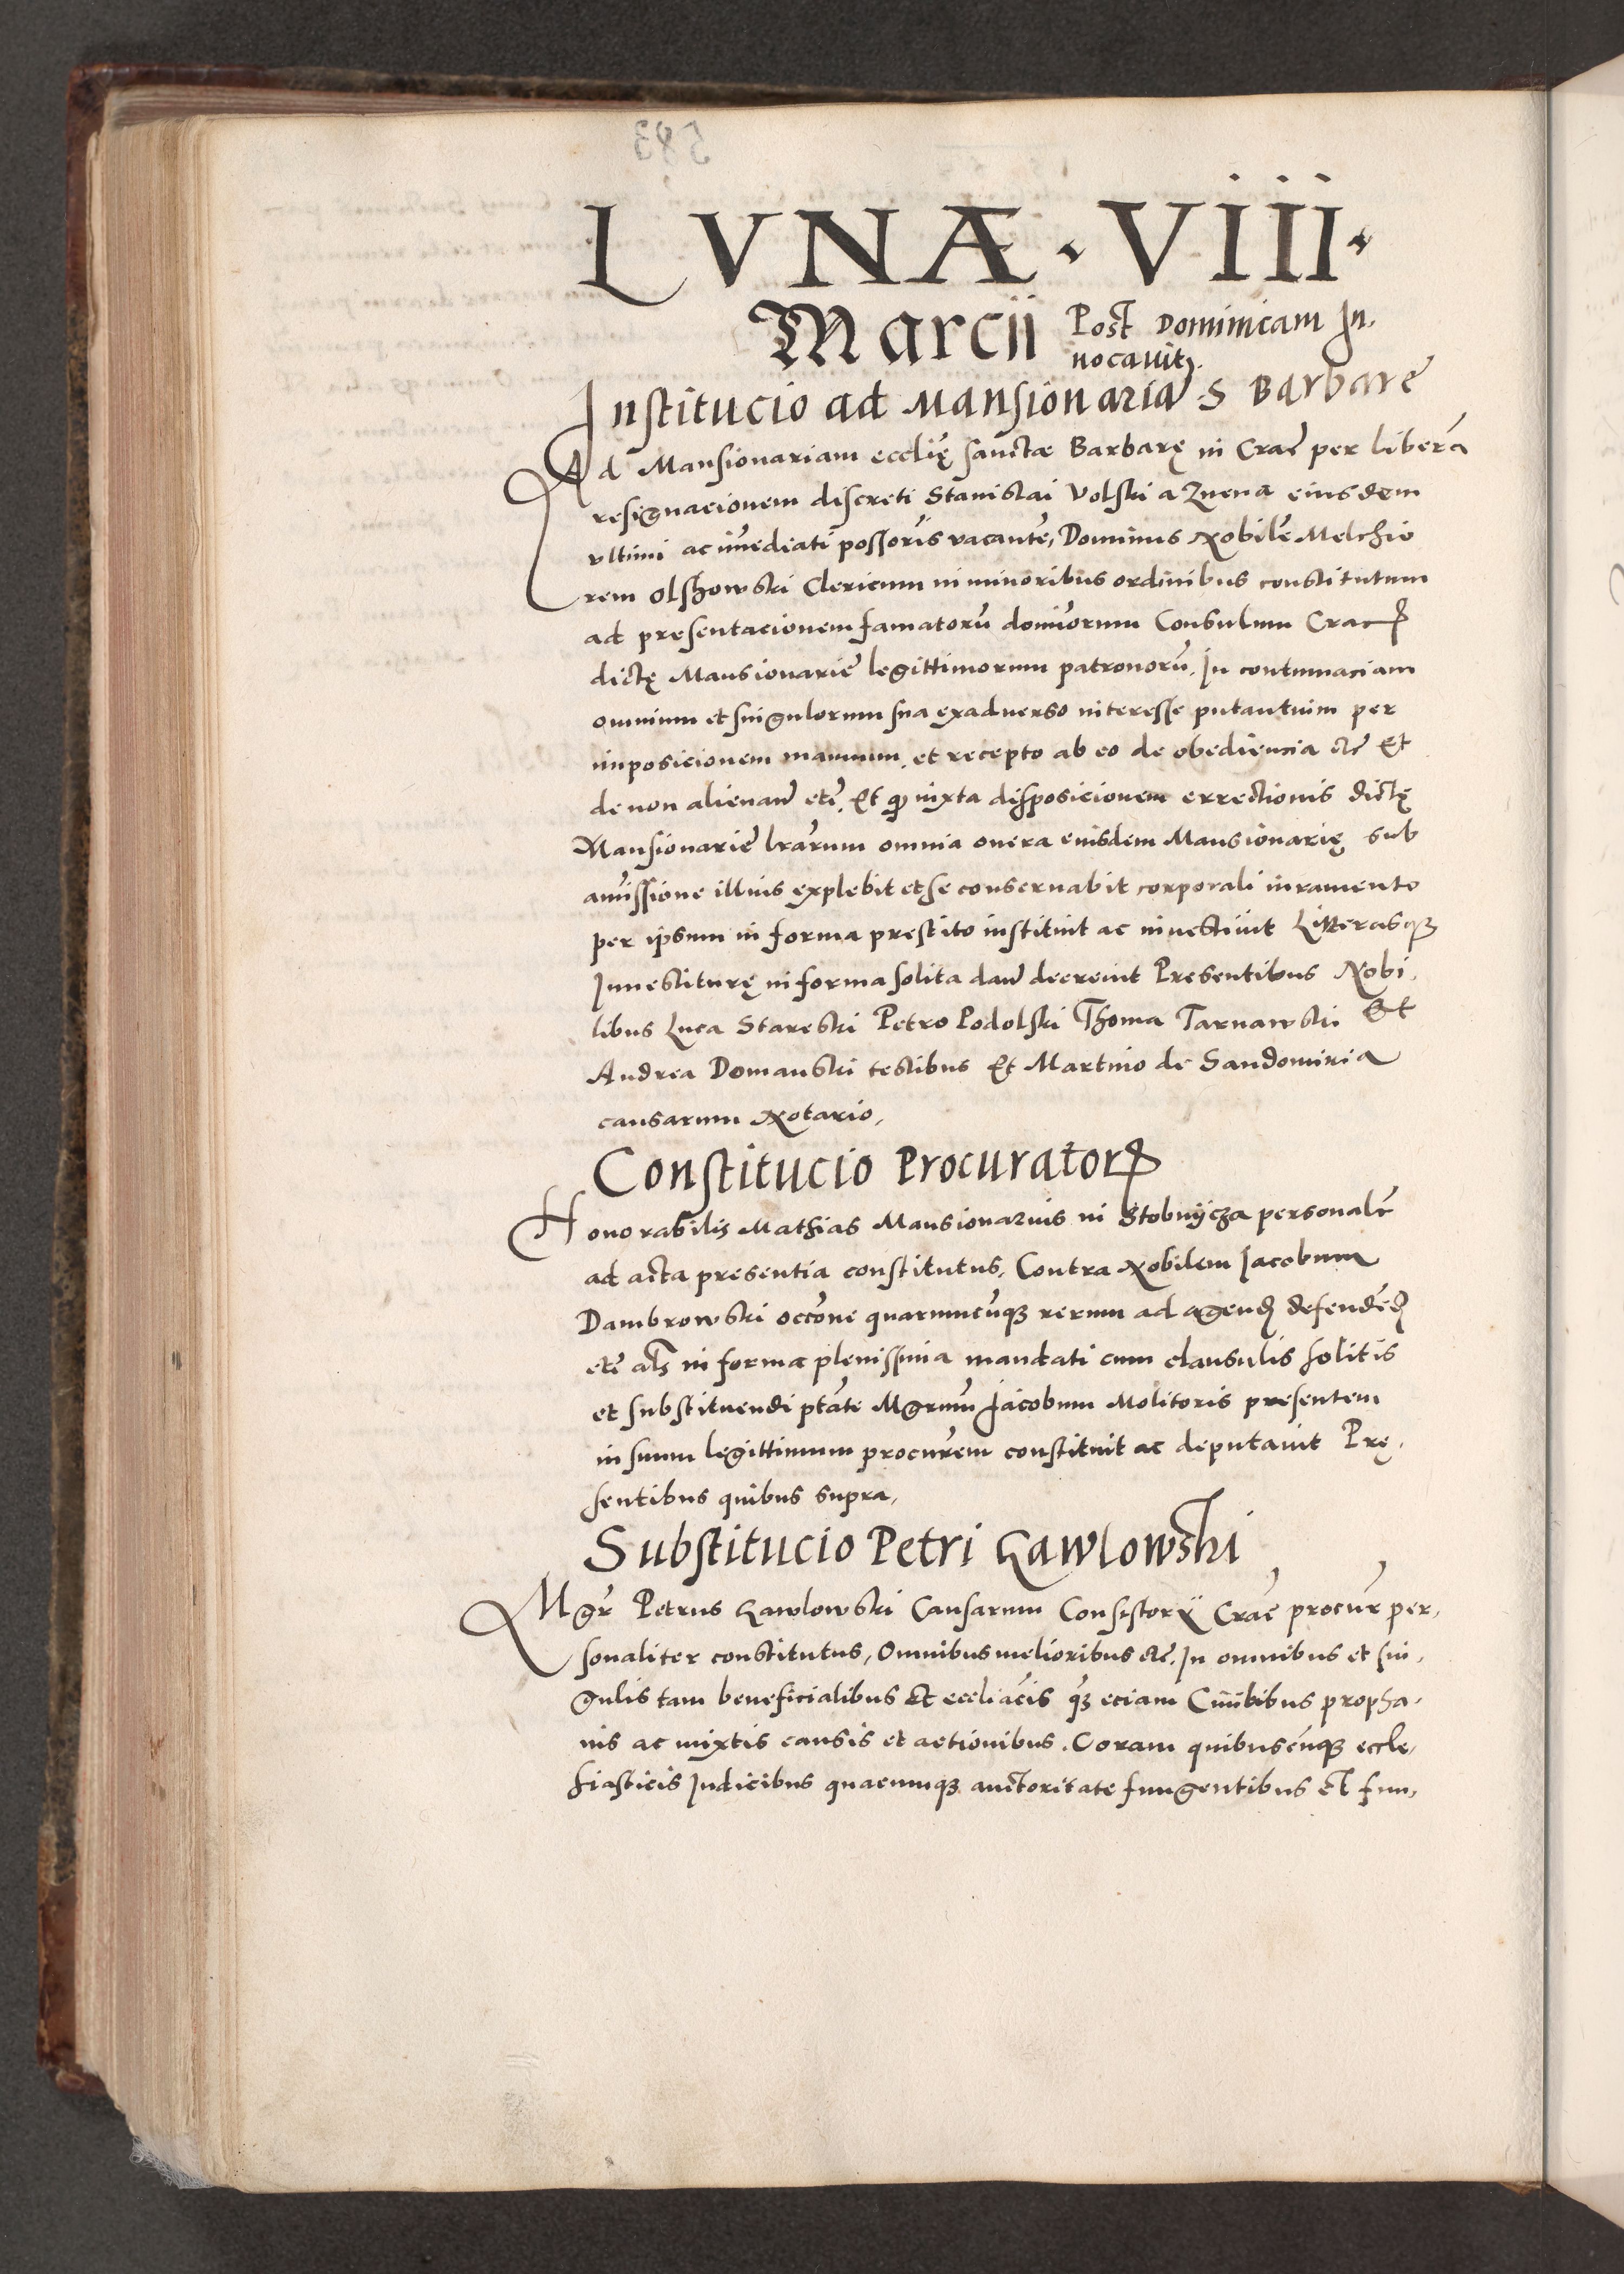 LVNÆ · VIII ·
Marcii Post Dominicam In-
uocauit.
Institucio ad Mansionariã S Barbare
Ad Mansionariam ecclię sanctæ Barbarę in Crac̃ per liberã
resignacionem discreti Stanislai Volski a Znena eiusdem
vltimi ac im̃ediati possoris vacantẽ, Dominus Nobilẽ Melchio
rem Olshowski Clericum in minoribus ordinibus constitutum
ad presentacionem famatorũ dominorum Consulum Crac̃
dictę Mansionariẽ legittimorum patronorũ. In contumaciam
omnium et singulorum sua exaduerso interesse putantium per
imposicionem manuum, et recepto ab eo de obediencia etc̃ Et
de non alienanđ etc̃. Et q̃ iuxta disposicionem errectionis dictę
Mansionariẽ lrãrum omnia onera eiusdem Mansionarię sub
amissione illius explebit et se conseruabit corporali iuramento
per ipsum in forma prestito instituit ac inuestiuit Litterasqȝ
Inuestiturę in forma solita danđ decreuit Presentibus Nobi-
libus Luca Stareski Petro Podolski Thoma Tarnawski Et
Andrea Domanski testibus Et Martino de Sandomiria
causarum Notario,
Constitucio Procuratorꝭ
Honorabilis Mathias Mansionarius in Stobnycza personalr̃
ad acta presentia constitutus, Contra Nobilem Iacobum
Dambrowski occõne quarumcũqȝ rerum ad agenđ defendẽđ
etc̃ als in forma plenissima mandati cum clausulis solitis
et substituendi ptãte Mgrum̃ Jacobum Molitoris presentem
in suum legittimum procurẽm constituit ac deputauit Prę-
sentibus quibus supra,
Substitucio Petri Gawlowski
Mgr̃ Petrus Gawlowski Causarum Consistorij Crac̃ procur̃ per-
sonaliter constitutus, Omnibus melioribus etc̃. In omnibus et sin-
gulis tam beneficialibus et eccliac̃is qȝ eciam Ciuilibus propha-
nis ac mixtis causis et actionibus. Coram quibuscũqȝ eccle-
siasticis Iudicibus quacumqȝ auctoritate fungentibus et fun-